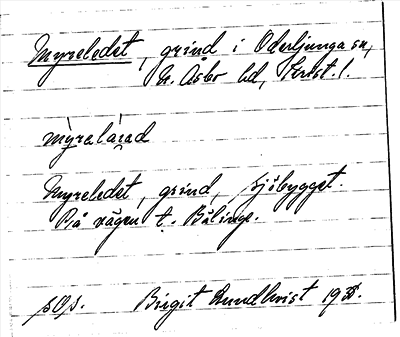 Myreledet, grind i Oderljunga sn,
N. Åsbo hd, Krist. l.
myralaad
Myreledet, grind, sjöbygget.
På vägen t. Bälinge.
Birgit Rundkvist 1935.